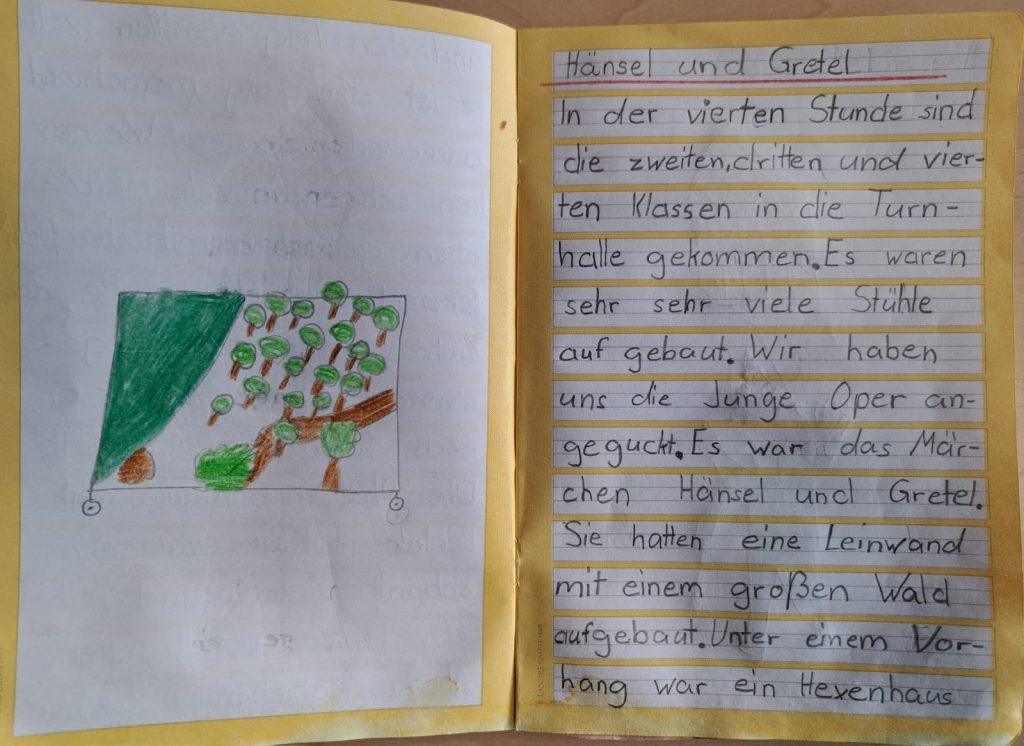 Hänsel und Gretel
In der vierten Stunde sind
die zweiten, dritten und vier-
ten Klassen in die Turn-
halle gekommen. Es waren
sehr sehr viele Stühle
auf gebaut. Wir haben
uns die Junge Oper an-
geguckt. Es war das Mär-
chen Hänsel und Gretel.
Sie hatten eine Leinwand
mit einem großen Wald
aufgebaut. Unter einem Vor-
hang war ein Hexenhaus